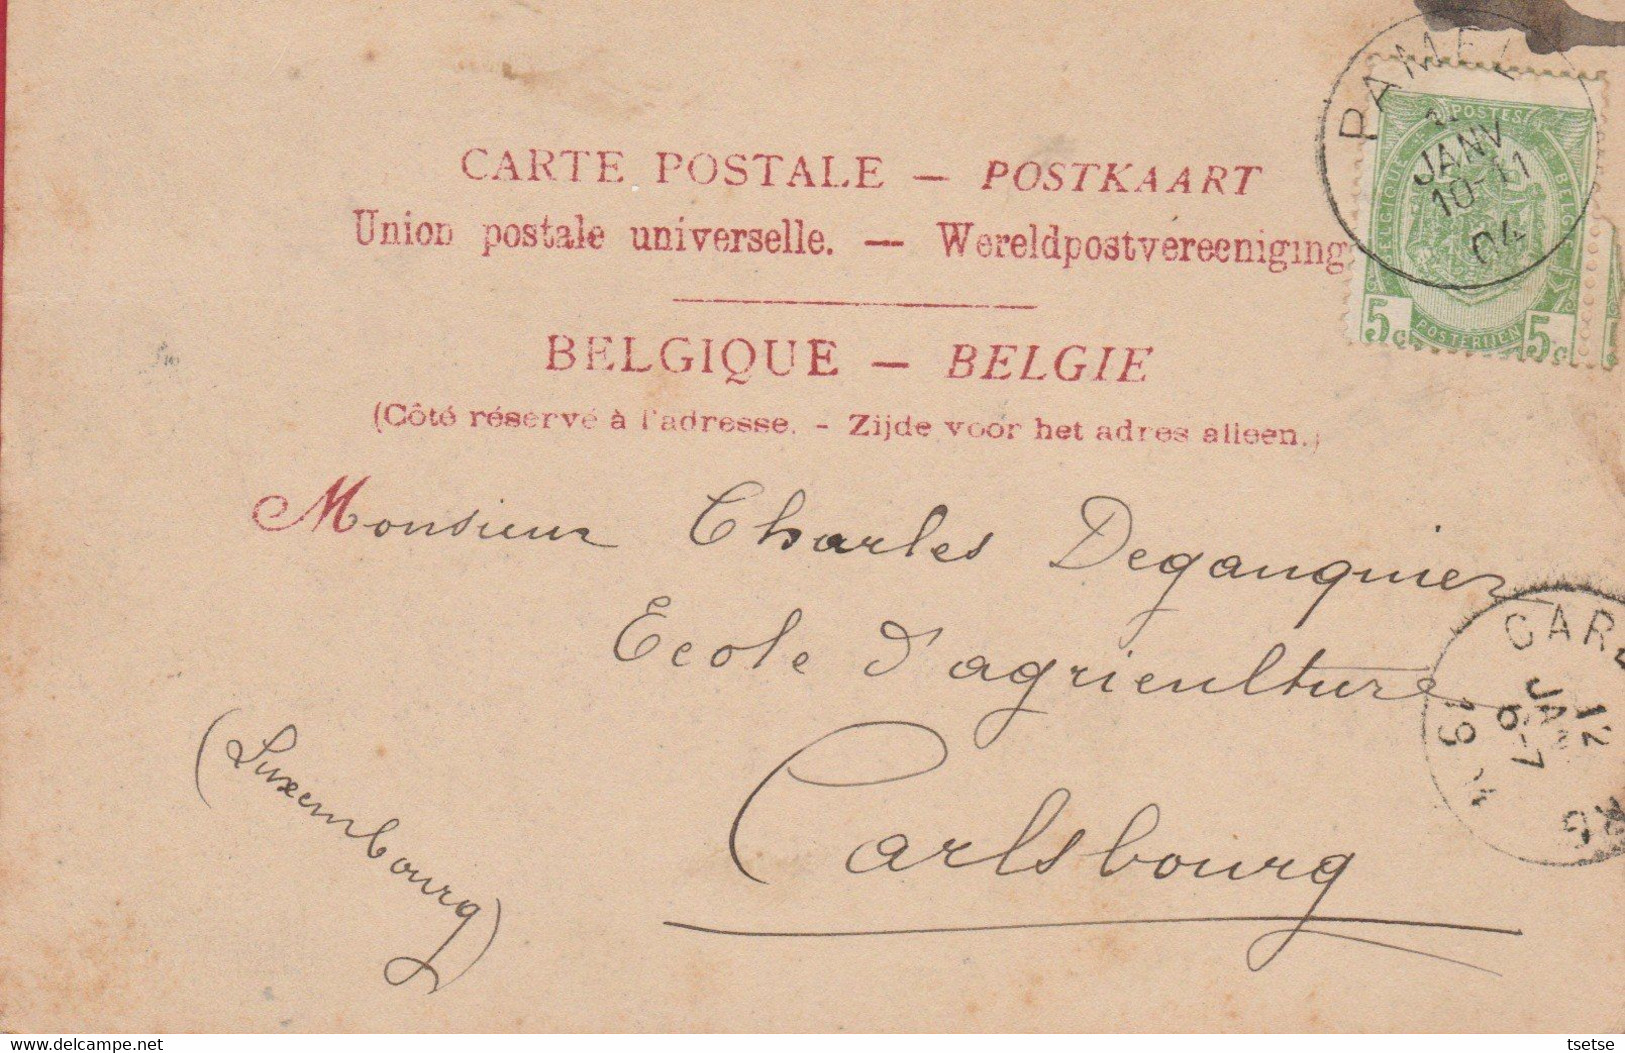 CARTE POSTALE — POSTKAART
Union postale universelle. — Wereldpostvereeniging
BELGIQUE — BELGIE
(Côté réservé à l'adresse. - Zijde voor het adres alleen.)
PAMEL
JANV
10-11
04
POSTES
BELGIQUE
BELGIË
5c
5c
POSTERIJEN
Monsieur Charles Deganquiez
Ecole d'agriculture
Carlsbourg
(Luxembourg)
12
JAN
6-7
19
delcampe.net
tsetse